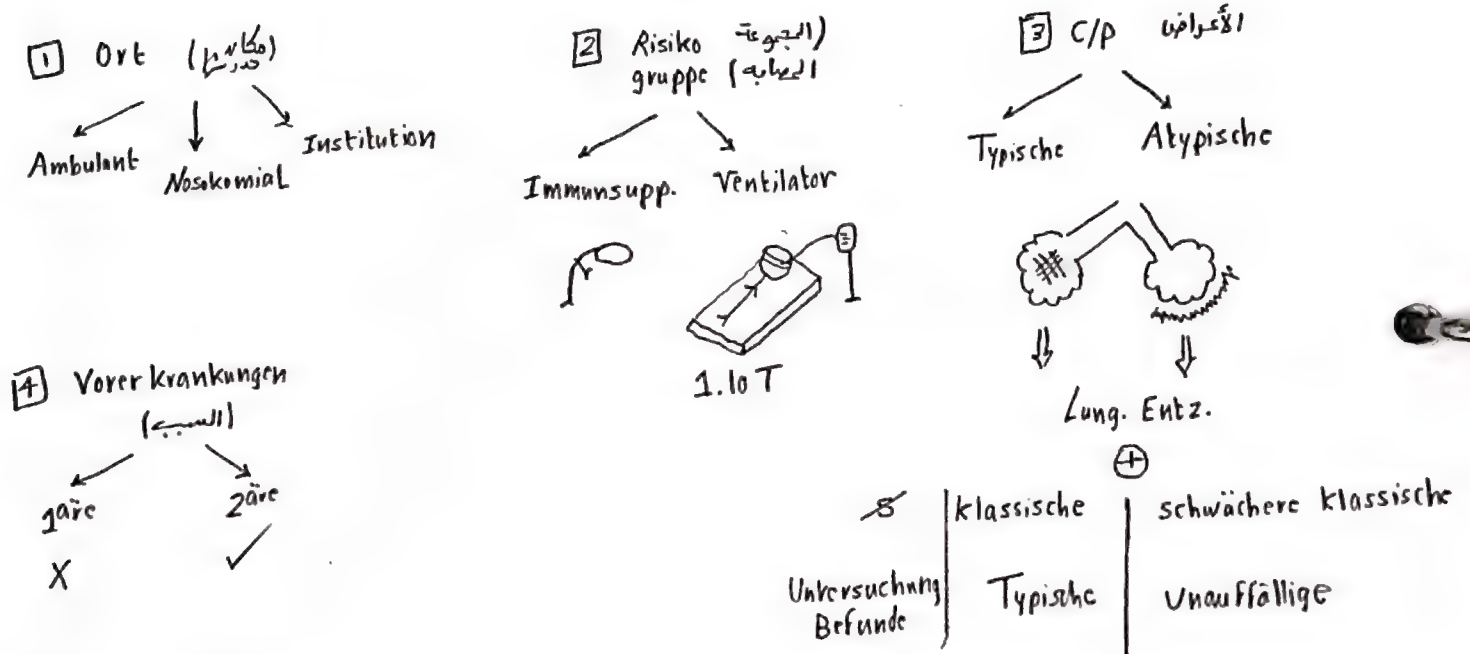 1 Ort (مكان حدوثها)
Ambulant
Nosokomial
Institution
2 Risiko (المجموعة
gruppe المصابه)
Immunsupp.
Ventilator
1.10 T
3 C/P الأعراض
Typische
Atypische
Lung. Entz.
+
klassische
schwächere klassische
Untersuchung
Befunde
Typische
Unauffällige
4 Vorerkrankungen
(السبب)
1äre
2äre
X
✓